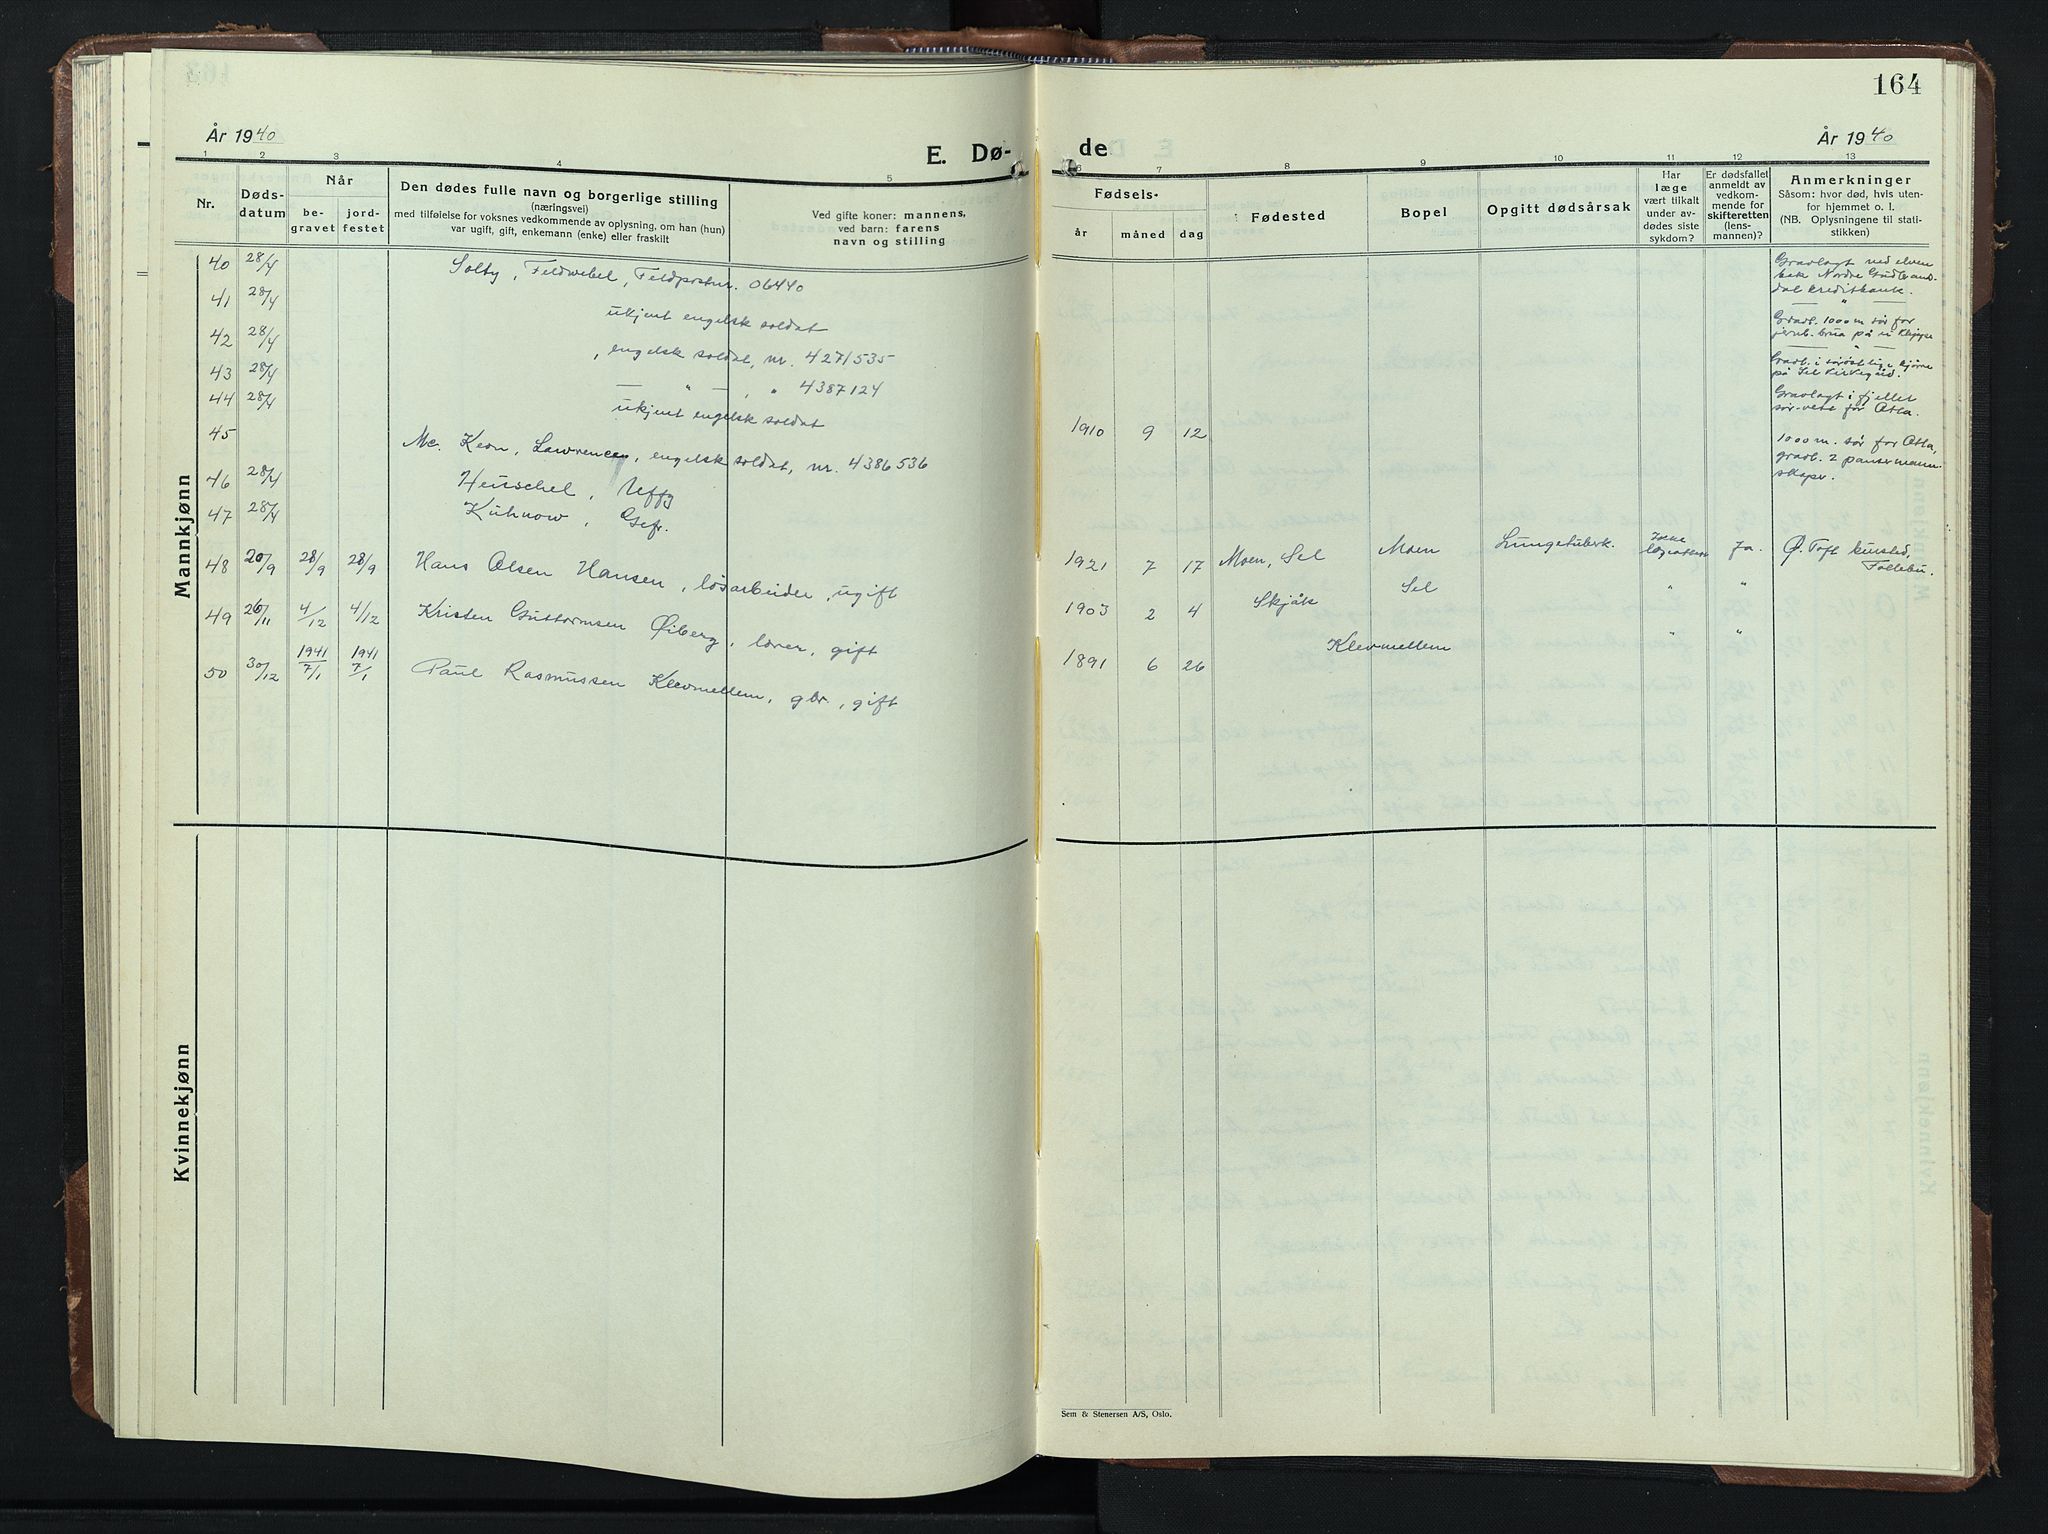 164
År 1940
E. Dø-
de
År 1940
1 2 3 4 5 6 7 8 9 10 11 12 13
Nr.
Døds-
datum
Når
be-
gravet
jord-
festet
Den dødes fulle navn og borgerlige stilling
(næringsvei)
med tilføielse for voksnes vedkommende av oplysning, om han (hun)
var ugift, gift, enkemann (enke) eller fraskilt
Ved gifte koner: mannens,
ved barn: farens
navn og stilling
Fødsels-
år måned dag
Fødested
Bopel
Opgitt dødsårsak
Har
læge
vært tilkalt
under av-
dødes siste
sykdom?
Er dødsfallet
anmeldt av
vedkom-
mende for
skifteretten
(lens-
mannen)?
Anmerkninger
Såsom: hvor død, hvis uten-
for hjemmet o. l.
(NB. Oplysningene til stati-
stikken)
Mannkjønn
40 28/4 Solty, Feldwebel, Feldpostnr. 06440
Gravlagt ved elven
bak Nordre Gudbrands-
dal kreditbank.
41 28/4 ukjent engelsk soldat
— " —
42 28/4 , engelsk soldat, nr. 4271535
Gravl. 1000 m sør for
jernb. brua på
— " —
43 28/4 — " — , " 4387124
Gravl. i sørøstlige hjørne
på Sel kirkegård.
44 28/4 ukjent engelsk soldat
Gravlagt i fjellet
sør-vest for Otta.
45 Mc. Keon, Lawrence, engelsk soldat, nr. 4386536 1910 9 12
1000 m. sør for Otta,
gravl. 2 pansermann-
skaper.
46 28/4 Heuschel, Uffz
47 28/4 Kühnow, Gefr.
48 20/9 28/9 28/9 Hans Olsen Hansen, løsarbeider, ugift 1921 7 17 Moen, Sel Moen Lungetuberk. Ja. Ø. Toft kursted,
Follebu.
49 26/11 4/12 4/12 Kristen Guttormsen Øiberg, lærer, gift 1903 2 4 Skjåk Sel " "
50 30/12 1941 7/1 1941 7/1 Paul Rasmussen Klevmellem, gbr., gift 1891 6 26 Klevmellem " "
Kvinnekjønn
Sem & Stenersen A/S, Oslo.